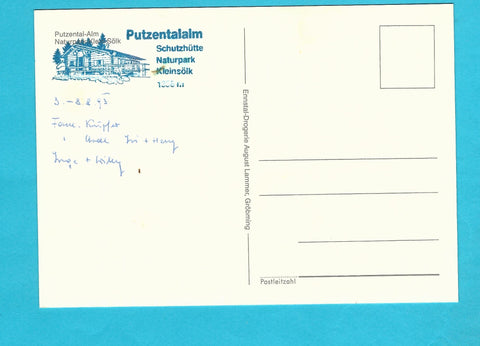 Putzental-Alm
Naturpark Kleinsölk
Putzentalalm
Schutzhütte
Naturpark
Kleinsölk
3. - 8. 8. 95
Fam. Küpfer
Inge + Willy
Ennstal-Drogerie August Lammer, Gröbming
Postleitzahl